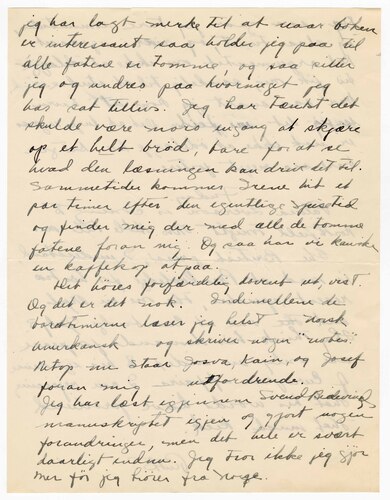 jeg har lagt merke til at naar boken
er interessant saa holder jeg paa til
alle fatene er tomme, og saa sitter
jeg og undres paa hvormeget jeg
har sat tillivs. Jeg har tænkt det
skulde være moro engang at skjære
op et helt brød, bare for at se
hvad den læsningen kan drive det til.
Sommetider kommer Irene hit et
par timer efter den egentlige spisetid
og finder mig der med alle de tomme
fatene foran mig. Og saa har vi kanske
en kaffekop at paa.
Det høres forfærdelig dovent ut, vist.
Og det er det nok. Indimellem de
timerne læser jeg helst norsk
amerikansk og skriver nogen "notes".
Netop nu staar Josva, Kain, og Josef
foran mig utfordrende.
Jeg har læst igjennem Svend
manuskriptet igjen og gjort nogen
forandringer, men det hele er svært
daarligt endnu. Jeg tror ikke jeg gjør
mer før jeg hører fra Norge.